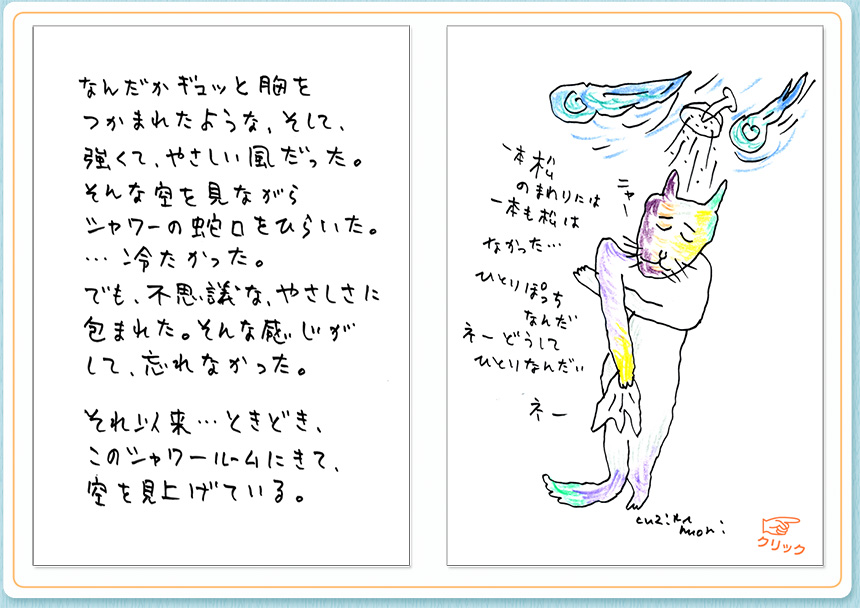 なんだかギュッと胸を
つかまれたような、そして、
強くて、やさしい風だった。
そんな空を見ながら
シャワーの蛇口をひらいた。
…冷たかった。
でも、不思議な、やさしさに
包まれた。そんな感じが
して、忘れなかった。
それ以来…ときどき、
このシャワールームにきて、
空を見上げている。
一本松
のまわりには
一本も松は
なかった…
ひとりぼっち
なんだい
ネーどうして
ひとりなんだい
ネー
ニャー
クリック